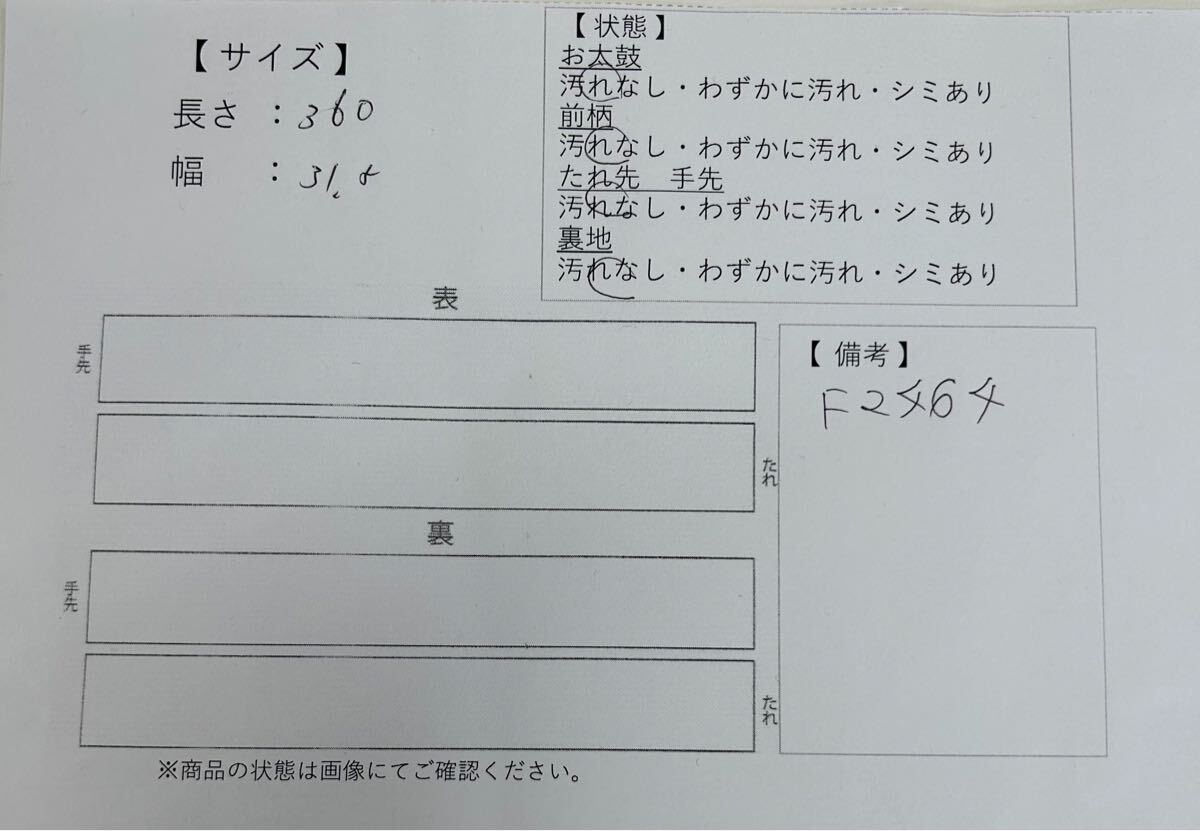 【 サイズ 】
長さ ：360
幅 ：31.8
【 状態 】
お太鼓
汚れなし・わずかに汚れ・シミあり
前柄
汚れなし・わずかに汚れ・シミあり
たれ先 手先
汚れなし・わずかに汚れ・シミあり
裏地
汚れなし・わずかに汚れ・シミあり
表
手先
たれ
裏
手先
たれ
【 備考 】
F2464
※商品の状態は画像にてご確認ください。